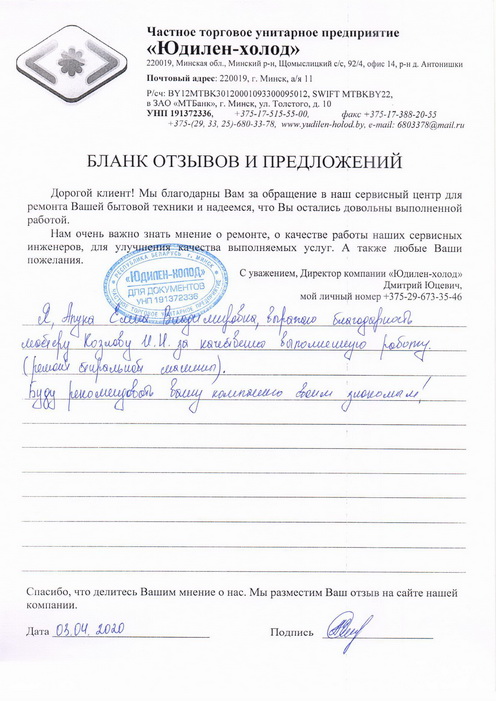 Частное торговое унитарное предприятие
«Юдилен-холод»
220019, Минская обл., Минский р-н, Щомыслицкий с/с, 92/4, офис 14, р-н д. Антонишки
Почтовый адрес: 220019, г. Минск, а/я 11
Р/сч: BY12MTBK30120001093300095012, SWIFT MTBKBY22,
в ЗАО «МТБанк», г. Минск, ул. Толстого, д. 10
УНП 191372336, +375-17-515-55-00, факс +375-17-388-20-55
+375-(29, 33, 25)-680-33-78, www.yudilen-holod.by, e-mail: 6803378@mail.ru
БЛАНК ОТЗЫВОВ И ПРЕДЛОЖЕНИЙ
Дорогой клиент! Мы благодарны Вам за обращение в наш сервисный центр для
ремонта Вашей бытовой техники и надеемся, что Вы остались довольны выполненной
работой.
Нам очень важно знать мнение о ремонте, о качестве работы наших сервисных
инженеров, для улучшения качества выполняемых услуг. А также любые Ваши
пожелания.
РЕСПУБЛИКА БЕЛАРУСЬ г. МИНСК
«ЮДИЛЕН-ХОЛОД»
ДЛЯ ДОКУМЕНТОВ
УНП 191372336
ЧАСТНОЕ ТОРГОВОЕ УНИТАРНОЕ ПРЕДПРИЯТИЕ
С уважением, Директор компании «Юдилен-холод»
Дмитрий Юцевич,
мой личный номер +375-29-673-35-46
Я, Елена Владимировна, выражаю благодарность
мастеру Козлову И.И. за качественно выполненную работу.
(ремонт стиральной машины).
Буду рекомендовать вашу компанию своим знакомым!
Спасибо, что делитесь Вашим мнением о нас. Мы разместим Ваш отзыв на сайте нашей
компании.
Дата 03.04.2020 Подпись